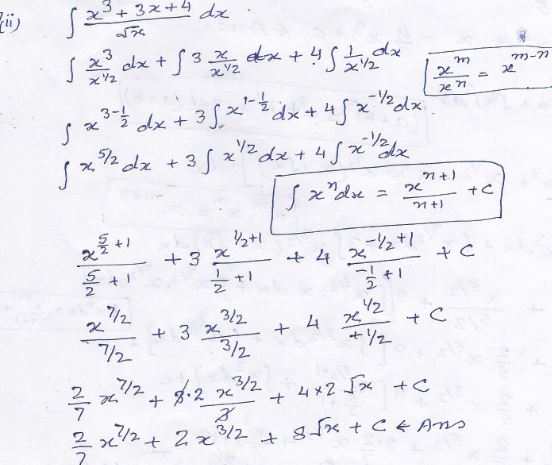 (ii) ∫ (x³ + 3x + 4)/√x dx
∫ x³/x^(1/2) dx + ∫ 3 x/x^(1/2) dx + 4 ∫ 1/x^(1/2) dx
x^m/x^n = x^(m-n)
∫ x^(3-1/2) dx + 3 ∫ x^(1-1/2) dx + 4 ∫ x^(-1/2) dx
∫ x^(5/2) dx + 3 ∫ x^(1/2) dx + 4 ∫ x^(-1/2) dx
∫ x^n dx = x^(n+1)/(n+1) + c
x^(5/2+1)/(5/2+1) + 3 x^(1/2+1)/(1/2+1) + 4 x^(-1/2+1)/(-1/2+1) + C
x^(7/2)/(7/2) + 3 x^(3/2)/(3/2) + 4 x^(1/2)/(+1/2) + C
2/7 x^(7/2) + 3·2 x^(3/2)/3 + 4×2 √x + C
2/7 x^(7/2) + 2x^(3/2) + 8√x + C ← Ans